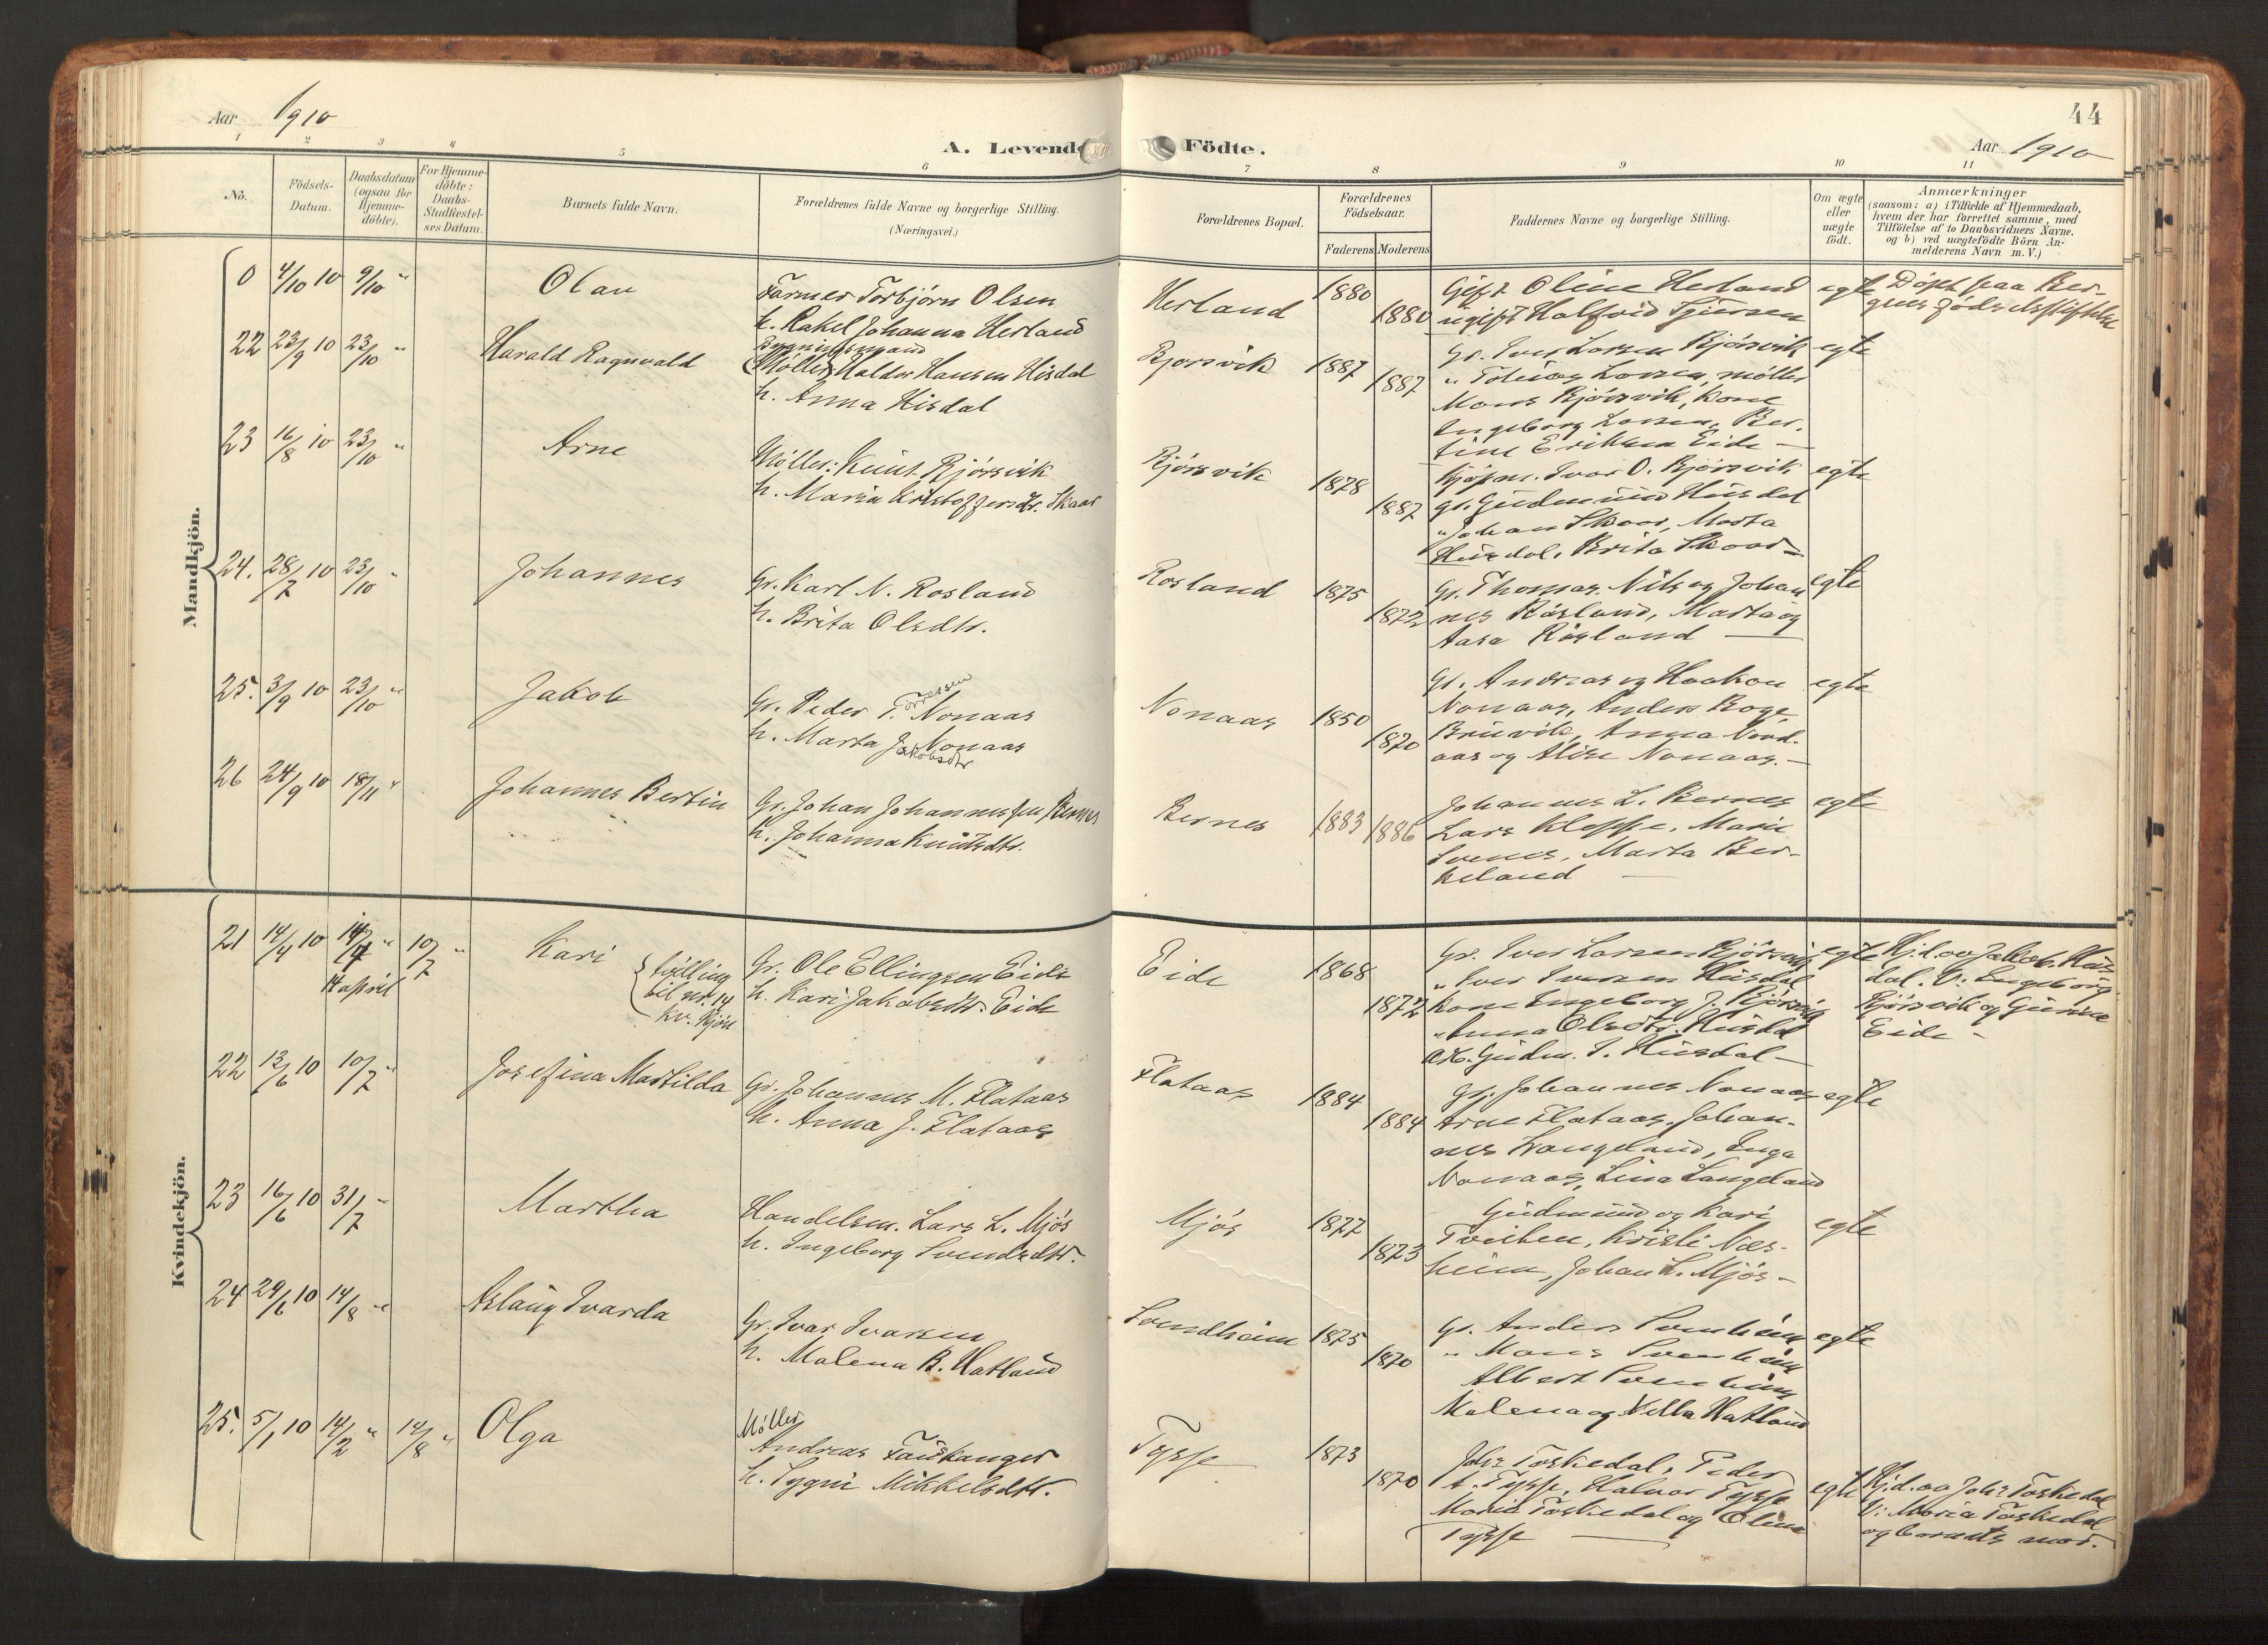 44
Aar 1910
A. Levende Födte.
Aar 1910
1 2 3 4 5 6 7 8 9 10 11
No.
Födsels-
Datum.
Daabsdatum
(ogsaa for
Hjemme-
döbte).
For Hjemme-
döbte:
Daabs-
Stadfæstel-
ses Datum.
Barnets fulde Navn.
Forældrenes fulde Navne og borgerlige Stilling.
(Næringsvei.)
Forældrenes Bopæl.
Forældrenes
Födselsaar.
Faderens Moderens
Faddernes Navne og borgerlige Stilling.
Om ægte
eller
uægte
födt.
Anmærkninger
(saasom: a) i Tilfælde af Hjemmedaab,
hvem der har forrettet samme, med
Tilföielse af to Daabsvidners Navne.
og b) ved uægtefödte Börn An-
melderens Navn m. V.)
Mandkjön.
0 4/10 10 9/10 "
Olav
Farmer Torbjörn Olsen
h. Rakel Johanna Herland
Herland
1880
1880
Gift Oline Herland
ugift Halfrid
egte
Döpt paa Ber-
gens Födselsstiftelse
22 23/9 10 23/10 "
Harald Ragnvald
Bygningsmand
(Møller) Haldor Hansen Hisdal
h. Anna Hisdal
Bjorsvik
1887
1887
Gr. Iver Larsen Bjórsvik
" Tobias Larsen, møller
Mons Bjórsvik, kone
Ingeborg Larsen, Ber-
tine Eriksen Eide —
egte
23 16/8 10 23/10 "
Arne
Møller: Knut Bjórsvik
h. Maria Kristoffersdtr. Skaar
Bjórsvik
1878
1887
Kjópm. Ivar O. Bjórsvik
gr. Gudmund Húsdal
" Johan Skaar, Marta
Húsdal, Brita Skaar —
egte
24. 28/7 10 23/10 "
Johannes
Gr. Karl N. Rosland
h. Brita Olsdtr.
Rosland
1875
1872
Gr. Thomas, Nils og Johan
nes Rósland, Marta og
Aasa Rósland —
egte
25. 3/9 10 23/10 "
Jakob
Gr. Peder T. Nonaas
h. Marta J. Nonaas
Jakobsdtr
Nonaas
1850
1870
Gr. Andreas og Haakon
Nonaas, Anders Boge,
Brúvik, Anna Nord-
aas og Alise Nonaas. —
egte
26 24/9 10 18/11 "
Johannes Bertin
Gr. Johan Johannessen Bernes
h. Johanna Knutsdtr.
Bernes
1883 1886
Johannes L. Bernes
Lars Kloppe, Marie
Marta Ber-
keland —
egte
Kvindekjön.
21 14/4 10 14/4 " 10/7 "
14 april
Kari
{ tvilling
til nr. 14
kv. kjön
Gr. Ole Ellingsen Eide
h. Kari Jakobsdtr. Eide
Eide
1868
1872
Gr. Iver Larsen Bjórsvik
" Iver Iversen Húsdal
kone Ingeborg J. Bjórsvik
" Anna Olsdtr. Húsdal
Gudm. I. Húsdal —
egte
Hj.d. av Jakob Hús
dal. V: Ingeborg
Bjórsvik og Gunne
Eide —
22 13/6 10 10/7 "
Josefina Matilda
Gr. Johannes M. Flataas
h. Anna J. Flataas
Flataas
1884
1884
Gr. Johannes Nonaas
Arne Flataas, Johan-
nes Langeland, Inga
Nonaas, Lina Langeland
egte
23 16/6 10 31/7 "
Martha
Handelsm. Lars L. Mjós
h. Ingeborg Svendsdtr.
Mjós
1877
1873
Gúdmúnd og Kari
Tveiten, Kristi Næs-
heim, Johan L. Mjós —
egte
24 29/6 10 14/8 "
Aslaúg Ivarda
Gr. Ivar Ivarsen
h. Malena B. Hatland
Svendheim
1875
1870
Gr. Anders Svenheim
" Mons Svenheim
Albert Svenheim
Malena og Nella Hatland
egte
25. 5/1 10 14/2 " 14/8 "
Olga
Møller
Andreas Fauskanger
h. Sygni Mikkelsdtr.
Tysse
1873
1870
Johs Toskedal, Peder
A. Tysse, Halvor Tysse
Maria Toskedal og Oline
Tysse —
egte
Hj.d. av Johs Toskedal
V: Maria Toskedal
og barnets mor.